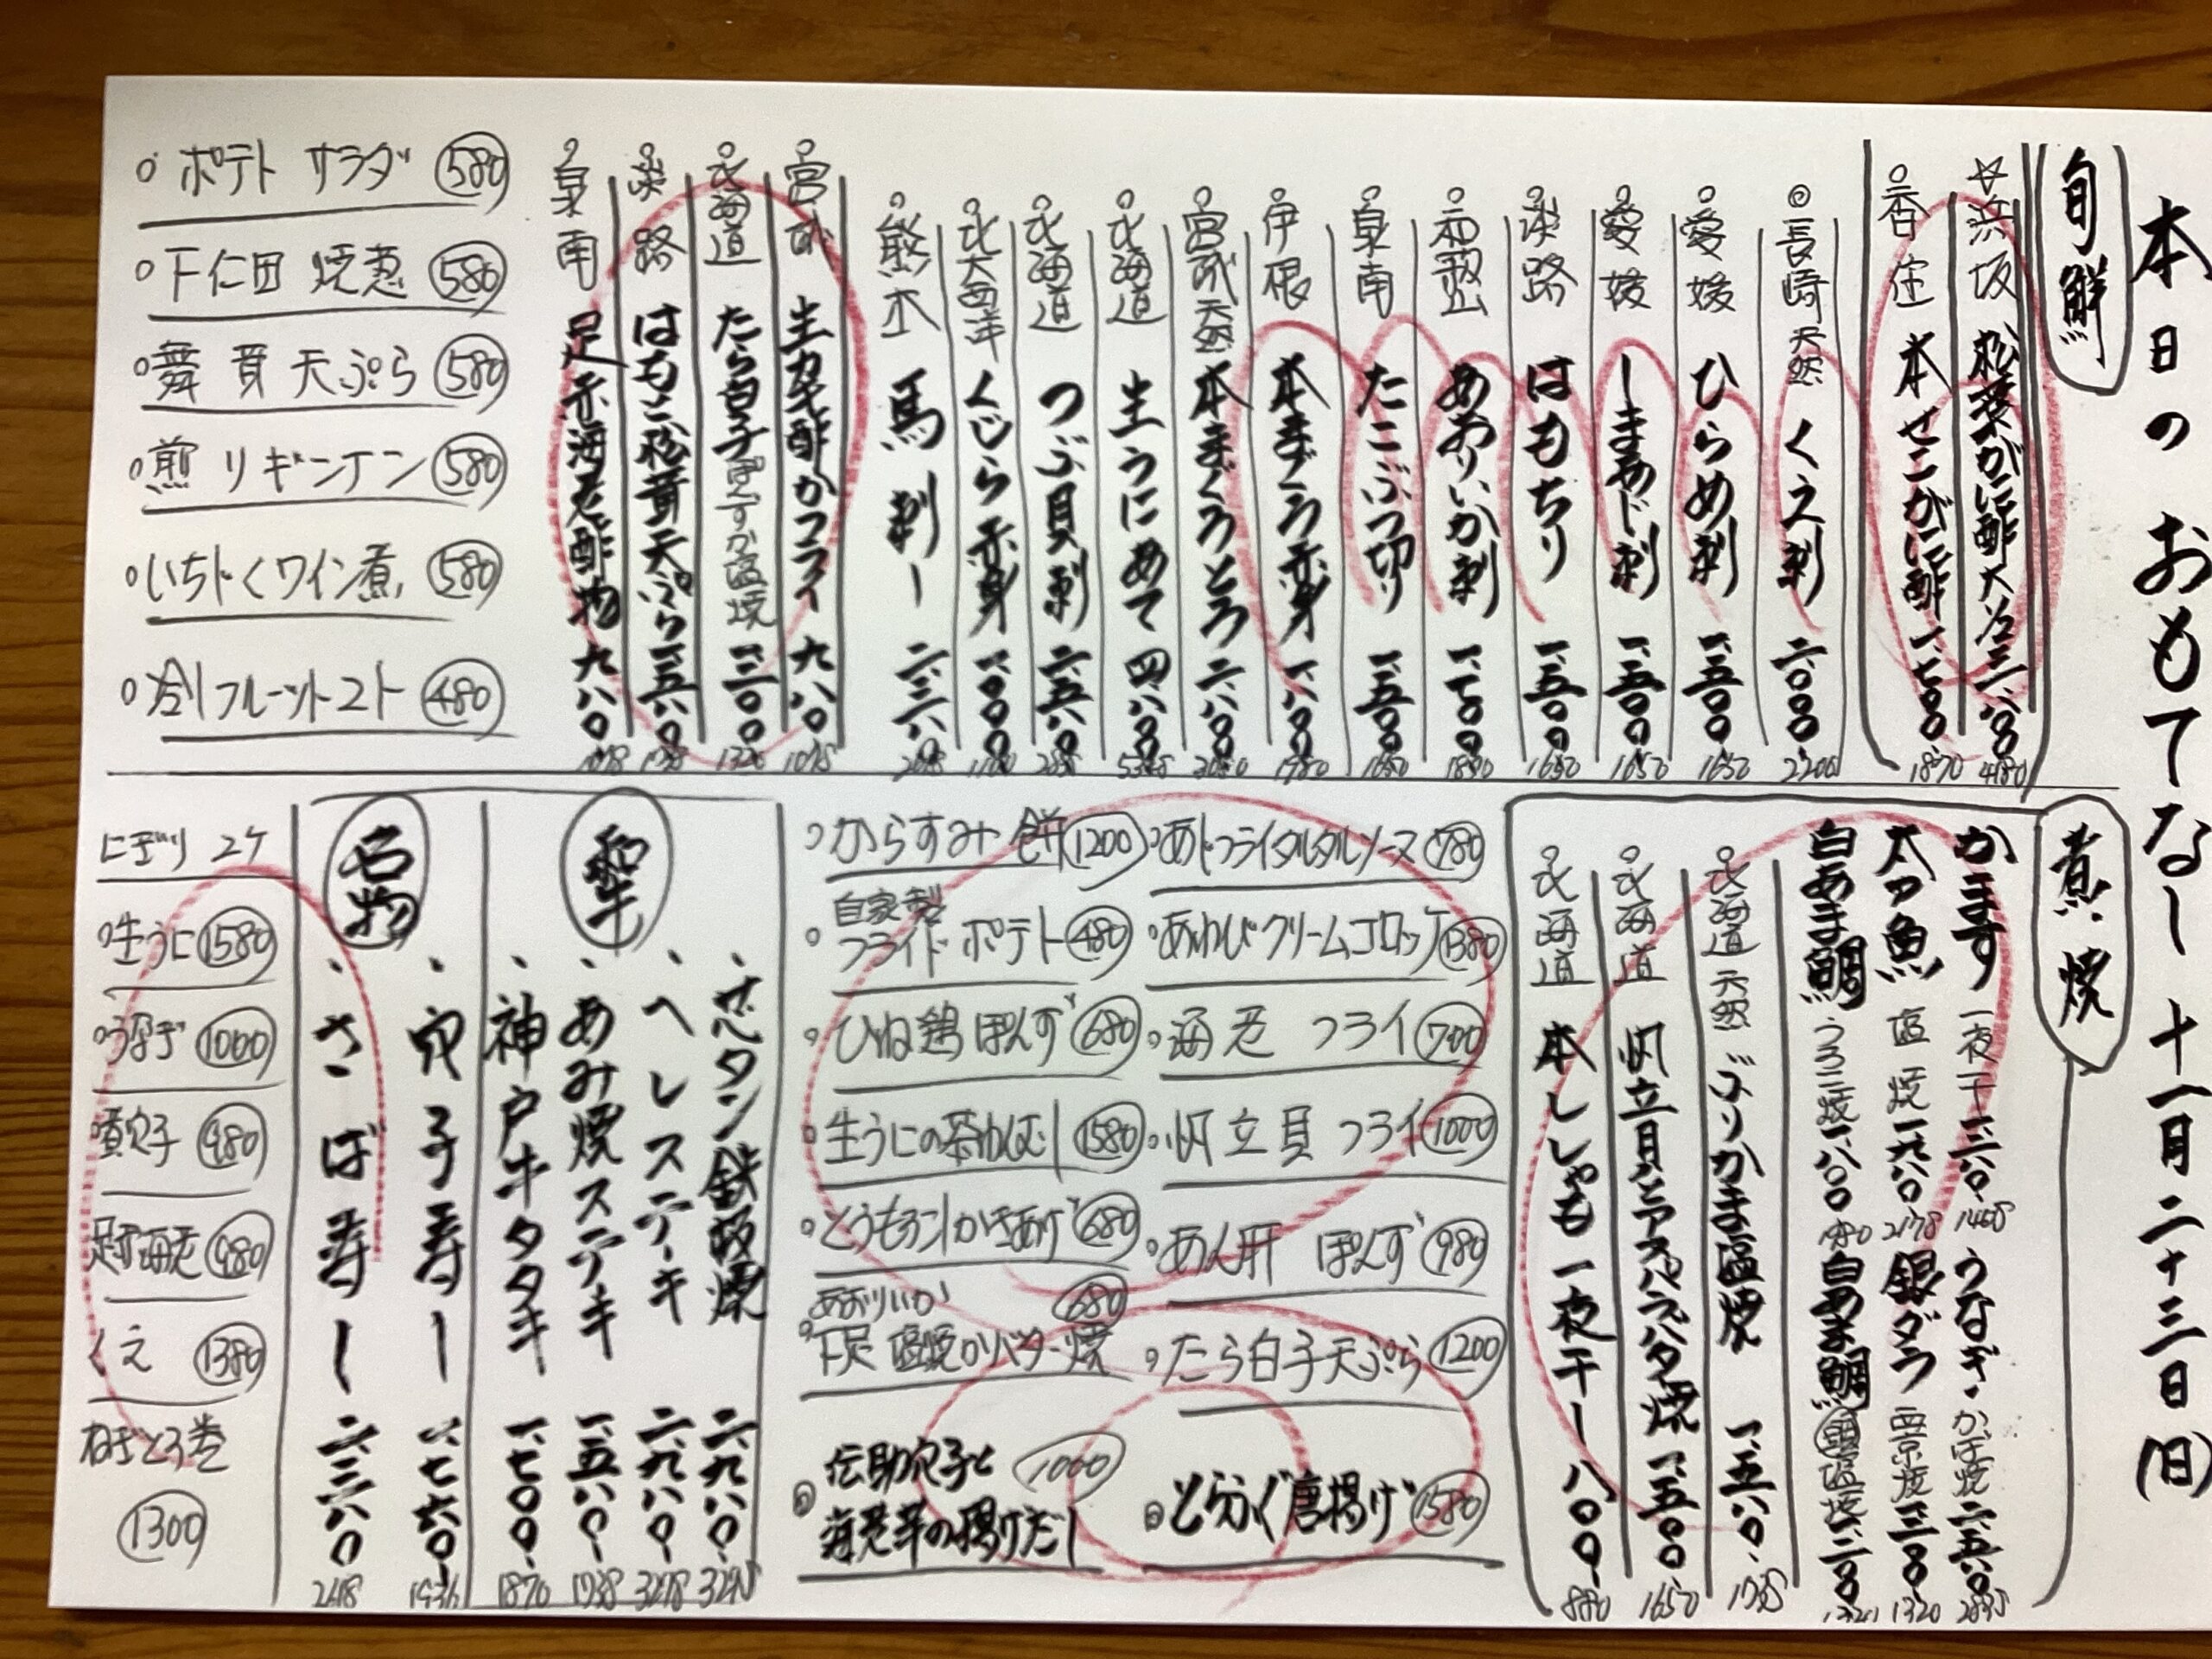 本日のおもてなし 十一月二十三日(日)
旬鮮
☆浜坂 松葉がに酢 三、八〇〇 4180
香住 本せこがに酢 一、七〇〇 1870
◎長崎 天然 くえ刺 二、〇〇〇 2200
愛媛 ひらめ刺 一、五〇〇 1650
愛媛 しまあじ刺 一、五〇〇 1650
淡路 はもちり 一、五〇〇 1650
和歌山 あおりいか刺
泉南 たこぶつ切り 一、五〇〇 1650
伊根 本まぐろ赤身
宮城 天然 本まぐろとろ 二、八〇〇 3080
北海道 生うにあて 四、八〇〇
北海道 つぶ貝刺
北大西洋 くじら赤身
熊本 馬刺し
宮城 生カキ酢かフライ 九八〇 1078
北海道 たら白子 ぽんずか塩焼
淡路 はもと松茸天ぷら
泉南 足赤海老酢物 九八〇 1078
ポテトサラダ 580
下仁田焼葱 580
舞茸天ぷら 580
煎りギンナン 580
いちじくワイン煮 580
冷しフルーツトマト 480
煮・焼
かます 一夜干
太刀魚 塩焼 一、九八〇 2178
白あま鯛 うろこ焼 一、八〇〇 1980
うなぎ・かば焼
銀ダラ 西京焼
白あま鯛 塩焼
北海道 天然 ぶりかま塩焼 一、五八〇 1738
北海道 帆立貝とアスパラバター焼 一、五〇〇 1650
北海道 本ししゃも一夜干し 八〇〇 880
あじフライタルタルソース 780
あわびクリームコロッケ 1380
海老フライ 700
帆立貝フライ 1000
あん肝ぽんず 980
たら白子天ぷら 1200
とらふぐ唐揚げ 1580
からすみ餅 1200
自家製
フライドポテト 480
ひね鶏ぽんず 680
生うにの茶わんむし 1580
とうもろこしかきあげ 680
あおりいか 680
下足 塩焼かバター焼
伝助穴子と 1000
海老芋の揚げだし
和牛
芯タン鉄板焼 二、九八〇
ヘレステーキ 二、九八〇 3278
あみ焼ステーキ 一、五八〇 1738
神戸牛タタキ 一、七〇〇 1870
名物
穴子寿し 一、七六〇 1936
さば寿し
にぎり 2ケ
生うに 1580
うなぎ 1000
煮穴子 980
足赤海老 980
くえ 1380
ねぎとろ巻
1300